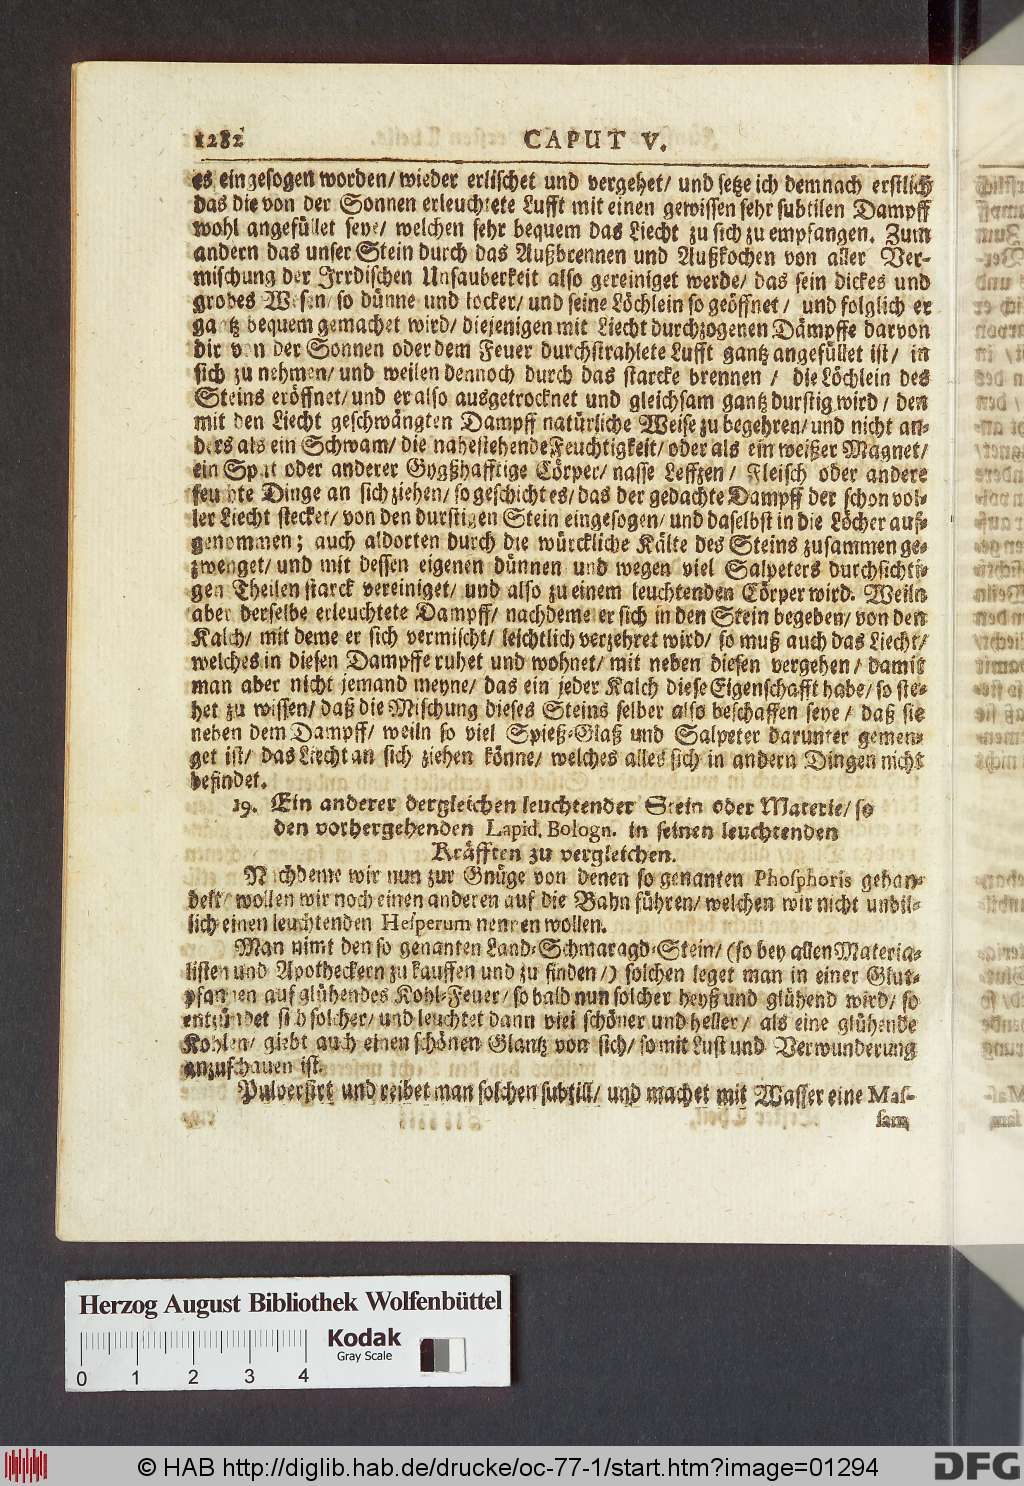 1282 CAPUT V.
es eingesogen worden/ wieder erlischet und vergehet/ und setze ich demnach erstlich
das die von der Sonnen erleuchtete Lufft mit einen gewissen sehr subtilen Dampff
wohl angefüllet seye/ welchen sehr bequem das Liecht zu sich zu empfangen. Zum
andern das unser Stein durch das Außbrennen und Außkochen von aller Ver-
mischung der Irrdischen Unsauberkeit also gereiniget werde/ das sein dickes und
grobes Wesen/ so dünne und locker/ und seine Löchlein so geöffnet/ und folglich er
gantz bequem gemachet wird/ diejenigen mit Liecht durchzogenen Dämpffe darvon
dir von der Sonnen oder dem Feuer durchstrahlete Lufft gantz angefüllet ist/ in
sich zu nehmen/ und weilen dennoch durch das starcke brennen / die Löchlein des
Steins eröffnet/ und er also ausgetrocknet und gleichsam gantz durstig wird/ den
mit den Liecht geschwängten Dampff natürliche Weise zu begehren/ und nicht an-
ders als ein Schwam/ die nahestehende Feuchtigkeit/ oder als ein weißer Magnet/
ein Spat oder anderer Gygßhafftige Cörper/ nasse Leffzen / Fleisch oder andere
feuchte Dinge an sich ziehen/ so geschicht es/ das der gedachte Dampff der schon vol-
ler Liecht stecket/ von den durstigen Stein eingesogen/ und daselbst in die Löcher auf-
genommen; auch aldorten durch die würckliche Kälte des Steins zusammen ge-
zwenget/ und mit dessen eigenen dünnen und wegen viel Salpeters durchsichti-
gen Theilen starck vereiniget/ und also zu einem leuchtenden Cörper wird. Weiln
aber derselbe erleuchtete Dampff/ nachdeme er sich in den Stein begeben/ von den
Kalch/ mit deme er sich vermischt/ leichtlich verzehret wird/ so muß auch das Liecht/
welches in diesen Dampffe ruhet und wohnet/ mit neben diesen vergehen/ damit
man aber nicht jemand meyne/ das ein jeder Kalch diese Eigenschafft habe/ so ste-
het zu wissen/ daß die Mischung dieses Steins selber also beschaffen seye/ daß sie
neben dem Dampff/ weiln so viel Spieß-Glaß und Salpeter darunter gemen-
get ist/ das Liecht an sich ziehen könne/ welches alles sich in andern Dingen nicht
befindet.
19. Ein anderer dergleichen leuchtender Stein oder Materie/ so
den vorhergehenden Lapid. Bologn. in seinen leuchtenden
Kräfften zu vergleichen.
Nachdeme wir nun zur Gnüge von denen so genanten Phosphoris gehan-
delt/ wollen wir noch einen anderen auf die Bahn führen/ welchen wir nicht unbil-
lich einen leuchtenden Hesperum nennen wollen.
Man nimt den so genanten Land-Schmaragd-Stein/ (so bey allen Materia-
listen und Apotheckern zu kauffen und zu finden/) solchen leget man in einer Glut-
pfannen auf glühendes Kohl-Feuer/ so bald nun solcher heyß und glühend wird/ so
entzündet sich solcher/ und leuchtet dann viel schöner und heller/ als eine glühende
Kohlen/ giebt auch einen schönen Glantz von sich/ so mit Lust und Verwunderung
anzuschauen ist.
Pulversirt und reibet man solchen subtill/ und machet mit Wasser eine Mas-
sam
Herzog August Bibliothek Wolfenbüttel
Kodak
Gray Scale
0 1 2 3 4
© HAB http://diglib.hab.de/drucke/oc-77-1/start.htm?image=01294
DFG